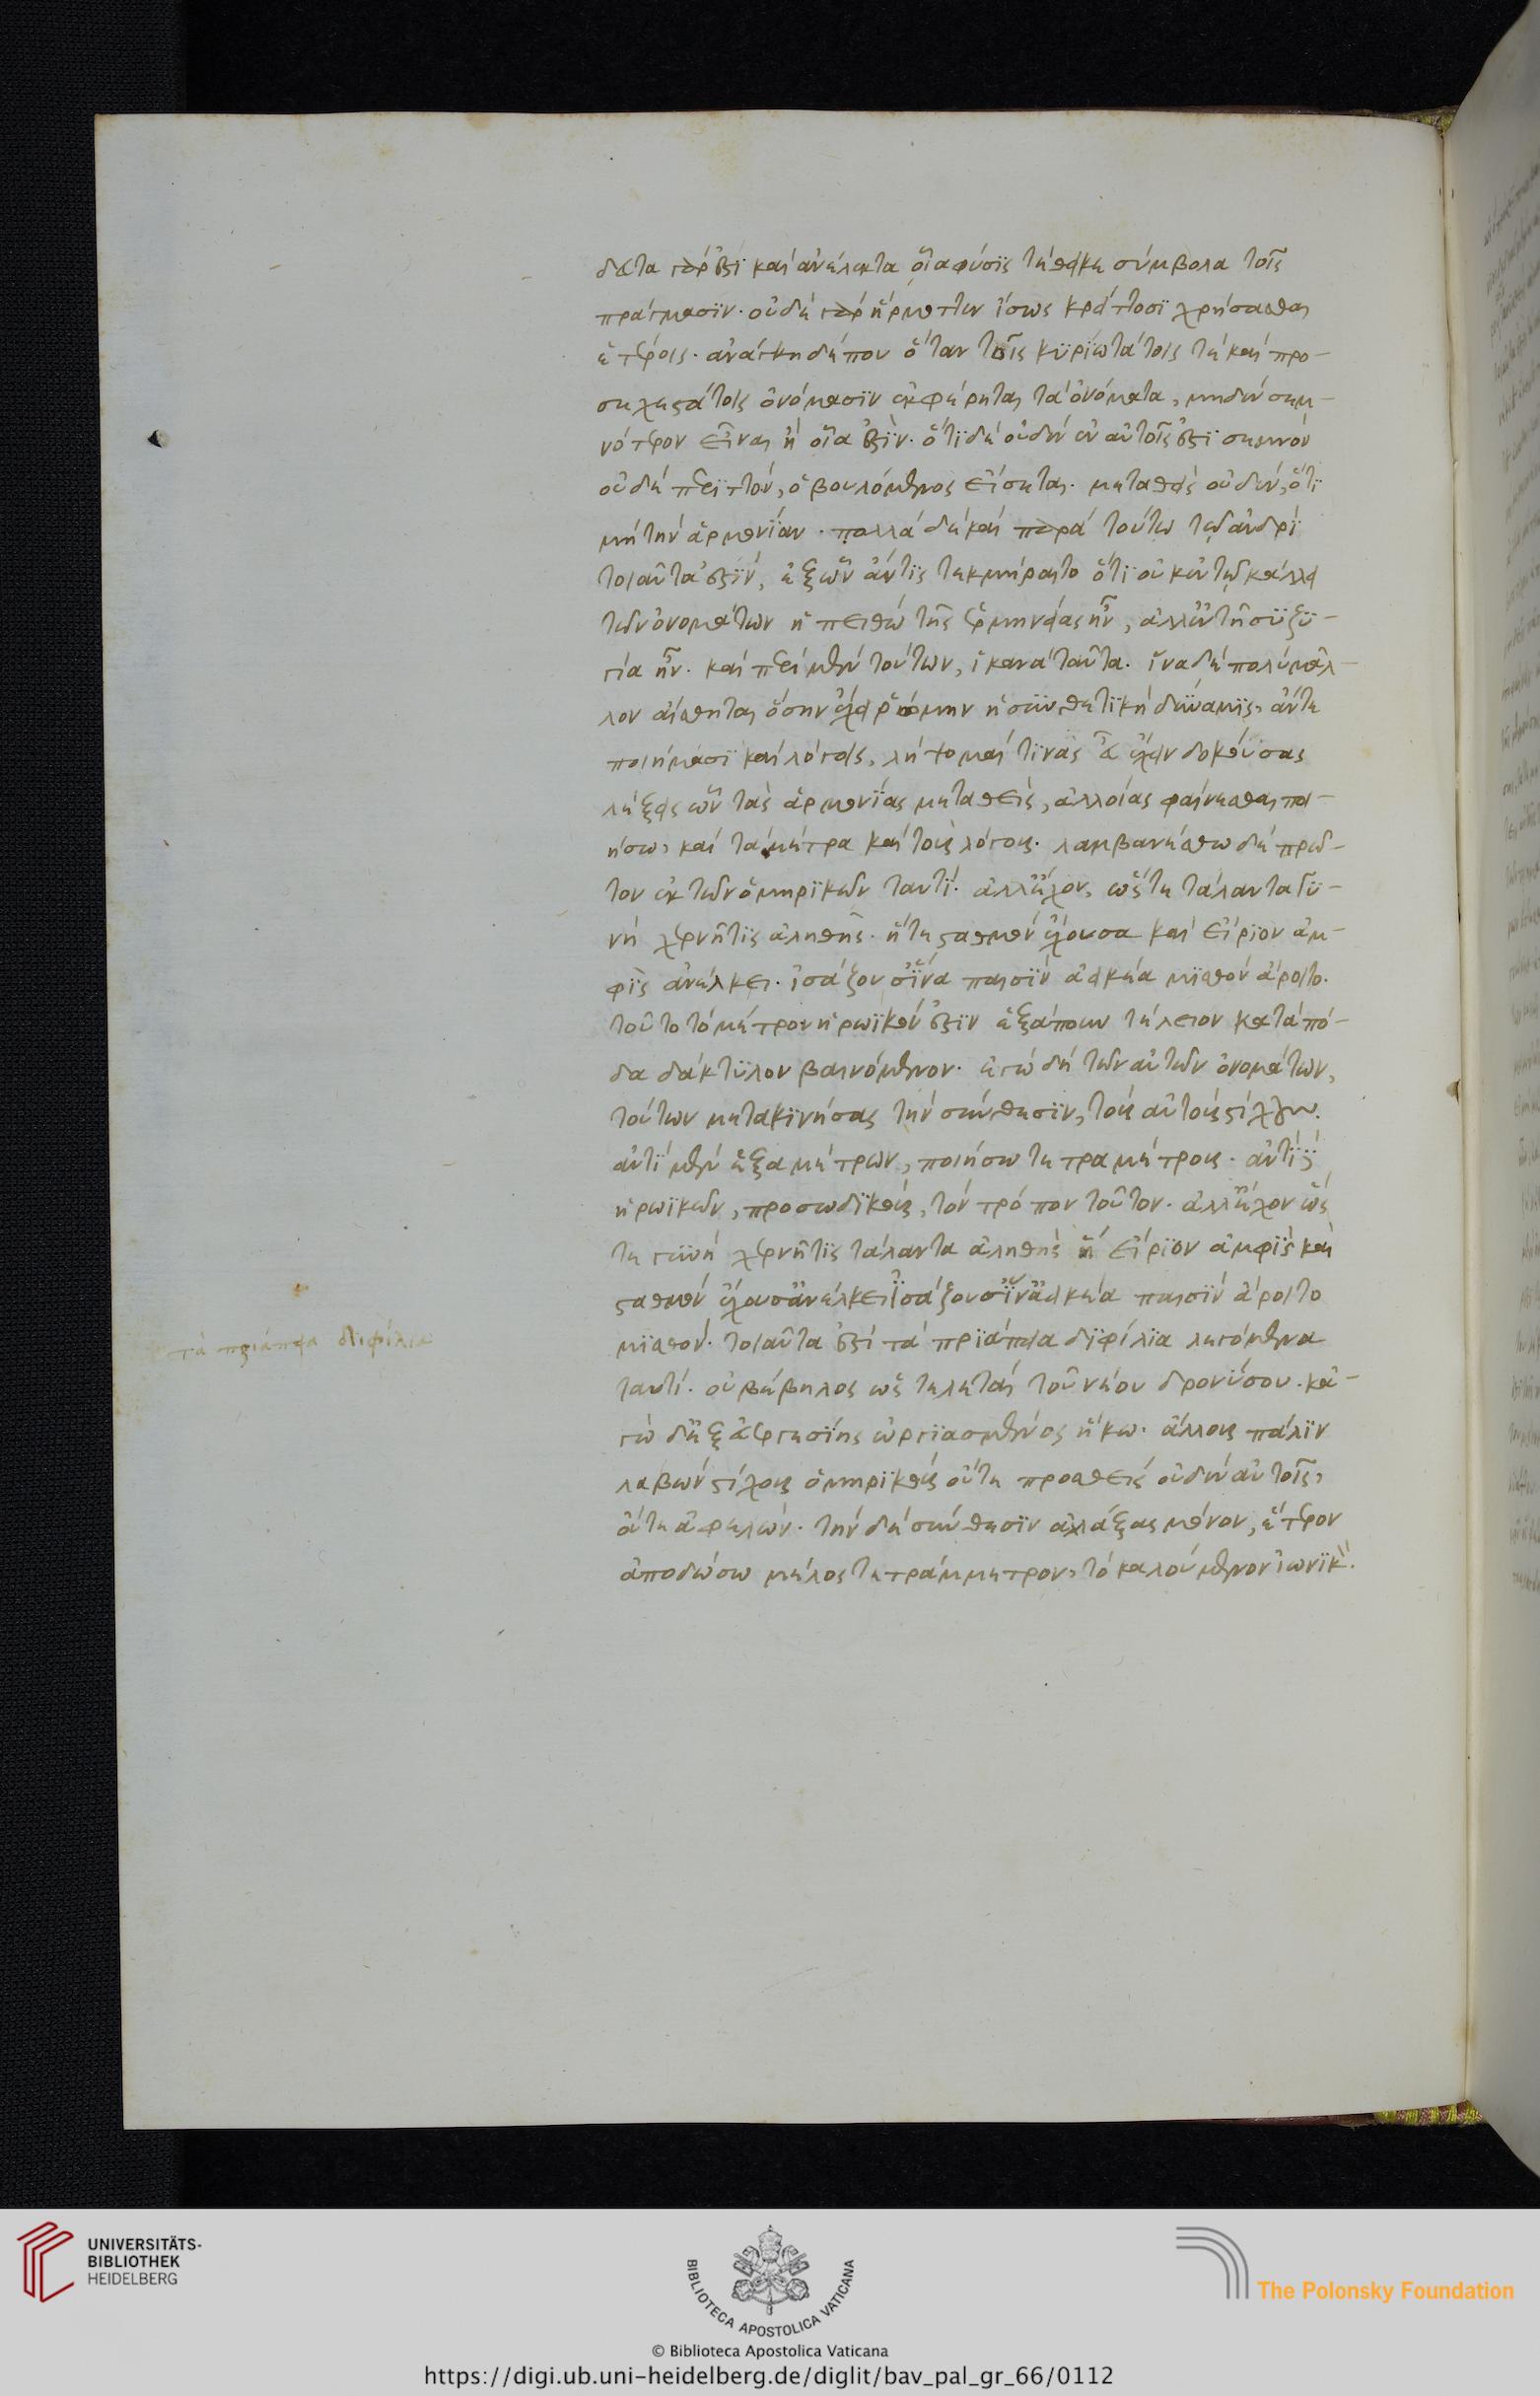 δεῖα γάρ ἐστι καὶ ἀνέλεκτα οἷα φύσις τέθεικε σύμβολα τοῖς
πράγμασιν. οὐδὲ γὰρ ἥρμοττεν ἴσως κρείττοσι χρήσασθαι
ἑτέροις. ἀνάγκη δέ που ὅταν τοῖς κυριωτάτοις τὲ καὶ προ-
σεχεστάτοις ὀνόμασιν ἐκφέρηται τὰ ὀνόματα, μηδὲν σεμ-
νότερον εἶναι ἢ οἷα ἐστὶν. ὅτι δὲ οὐδὲν ἐν αὐτοῖς ἐστι σεμνὸν
οὐδὲ περιττόν, ὁ βουλόμενος εἴσεται. μεταθεὶς οὐδὲν, ὅτι
μὴ τὴν ἁρμονίαν. πολλὰ δὲ καὶ παρὰ τούτῳ τῷ ἀνδρὶ
τοιαῦτα ἐστὶν, ἐξ ὧν ἄν τις τεκμήραιτο ὅτι οὐκ ἐν τῷ κάλλει
τῶν ὀνομάτων ἡ πειθὼ τῆς ἑρμηνείας ἦν, ἀλλ' ἐν τῇ συζυ-
γία ἦν. καὶ περὶ μὲν τούτων, ἱκανὰ ταῦτα. ἵνα δὲ πολὺ μᾶλ-
λον αἴσθηται ὅσην ἔχει ῥώμην ἡ συνθετικὴ δύναμις, ἄντε
ποιήμασι καὶ λόγοις, λήψομαί τινας εὖ ἔχειν δοκούσας
λέξεις ὧν τὰς ἁρμονίας μεταθεὶς, ἀλλοίας φαίνεσθαι ποι-
ήσω, καὶ τὰ μέτρα καὶ τοὺς λόγους. λαμβανέσθω δὲ πρῶ-
τον ἐκ τῶν ὁμηρικῶν ταυτί. ἀλλ' ἔχον, ὥστε τάλαντα γυ-
νὴ χερνῆτις ἀληθῆς. ἥτε σταθμὸν ἔχουσα καὶ εἴριον ἀμ-
φὶς ἀνέλκει. ἰσάζουσ' ἵνα παισὶν ἀεικέα μισθὸν ἄροιτο.
τοῦτο τὸ μέτρον ἡρωϊκόν ἐστιν ἑξάπουν τέλειον κατὰ πό-
δα δάκτυλον βαινόμενον. ἐγὼ δὴ τῶν αὐτῶν ὀνομάτων,
τούτων μετακινήσας τὴν σύνθεσιν, τοὺς αὐτοὺς στίχους.
ἀντὶ μὲν ἑξαμέτρων, ποιήσω τετραμέτρους. ἀντὶ δὲ
ἡρωϊκῶν, προσωδικοὺς, τὸν τρόπον τοῦτον. ἀλλ' ἔχον ὥσ
τε γυνὴ χερνῆτις τάλαντα ἀληθὴς ἥ εἴριον ἀμφὶς καὶ
σταθμὸν ἔχουσ' ἀνέλκει ἰσάζουσ' ἵν' ἀεικέα παισὶν ἄροιτο
μισθόν. τοιαῦτα ἐστὶ τὰ πριάπεια διφίλια λεγόμενα
ταυτί. οὐ βέβηλος ὡς τελεταὶ τοῦ νέου διονύσου. κἀ-
γὼ δ' ἐξ εὐεργεσίης ὠργιασμένος ἥκω. ἄλλους πάλιν
λαβὼν στίχους ὁμηρικοὺς οὔτε προσθεὶς οὐδὲν αὐτοῖς,
οὔτε ἀφελών. τὴν δὲ σύνθεσιν ἀλλάξας μόνον, ἕτερον
ἀποδώσω μέλος τετράμμετρον, τὸ καλούμενον ἰωνικ.
τὰ πριάπεια διφίλια
UNIVERSITÄTS-
BIBLIOTHEK
HEIDELBERG
BIBLIOTECA APOSTOLICA VATICANA
The Polonsky Foundation
© Biblioteca Apostolica Vaticana
https://digi.ub.uni-heidelberg.de/diglit/bav_pal_gr_66/0112